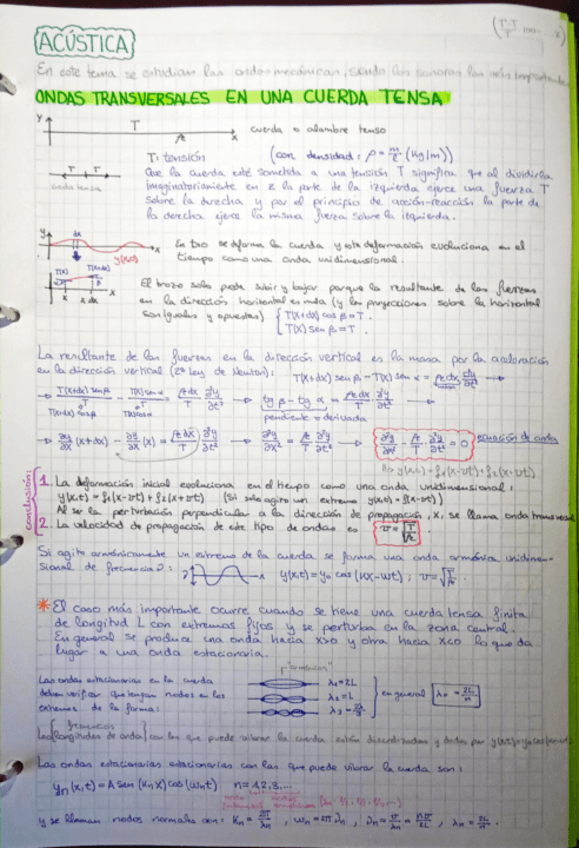 ACÚSTICA
En este tema se estudian las ondas mecánicas, siendo las sonoras las más importantes
ONDAS TRANSVERSALES EN UNA CUERDA TENSA
y T μ x cuerda o alambre tenso
T: tensión (con densidad: ρ = m/l (kg/m))
T T
cuerda tensa
Que la cuerda esté sometida a una tensión T significa que al dividirla
imaginatoriamente en 2 la parte de la izquierda ejerce una fuerza T
sobre la derecha y por el principio de acción-reacción la parte de
la derecha ejerce la misma fuerza sobre la izquierda.
y dx y(x,0) x
En t=0 se deforma la cuerda y esta deformación evoluciona en el
tiempo como una onda unidimensional.
T(x) T(x+dx) x x+dx x
El trozo solo puede subir y bajar porque la resultante de las fuerzas
en la dirección horizontal es nula (y las proyecciones sobre la horizontal
son iguales y opuestas) { T(x+dx) cos β = T.
T(x) sen β = T.
La resultante de las fuerzas en la dirección vertical es la masa por la aceleración
en la dirección vertical (2ª Ley de Newton): T(x+dx) sen β - T(x) sen α = μ dx ∂²y/∂t² →
→ T(x+dx) sen β / T - T(x) sen α / T = μ dx / T ∂²y/∂t² → tg β - tg α = μ dx / T ∂²y/∂t² →
T(x+dx) cos β T(x) cos α pendiente = derivada
→ ∂y/∂x (x+dx) - ∂y/∂x (x) = μ dx / T ∂²y/∂t² → ∂²y/∂x² = μ/T ∂²y/∂t² → ∂²y/∂x² - μ/T ∂²y/∂t² = 0 ecuación de onda
y(x,t) = f₁(x-vt) + f₂(x+vt)
conclusión:
1. La deformación inicial evoluciona en el tiempo como una onda unidimensional:
y(x,t) = f₁(x-vt) + f₂(x+vt) (Si solo agito un extremo y(x,t) = f₁(x-vt))
Al ser la perturbación perpendicular a la dirección de propagación, x, se llama onda transversal
2. La velocidad de propagación de este tipo de ondas es v = √T/μ
Si agito armónicamente un extremo de la cuerda se forma una onda armónica unidimen-
sional de frecuencia ν: x y(x,t) = y₀ cos (kx - wt) ; v = √T/μ .
* El caso más importante ocurre cuando se tiene una cuerda tensa finita
de longitud L con extremos fijos y se perturba en la zona central.
En general se produce una onda hacia x>0 y otra hacia x<0 lo que da
lugar a una onda estacionaria.
"armónicos"
Las ondas estacionarias en la cuerda
deben verificar que tengan nodos en los
extremos de la forma:
λ₁ = 2L
λ₂ = L
λ₃ = 2L/3
} en general λn = 2L/n
frecuencias
Las (longitudes de onda) con las que puede vibrar la cuerda están discretizadas y dadas por
Las ondas estacionarias estacionarias con las que puede vibrar la cuerda son:
yn (x,t) = A sen (Kn x) cos (ωn t) n = 1, 2, 3, ...
y se llaman nodos normales con: Kn = 2π/λn , ωn = 2π νn , νn = v/λn = nv/2L , λn = 2L/n .